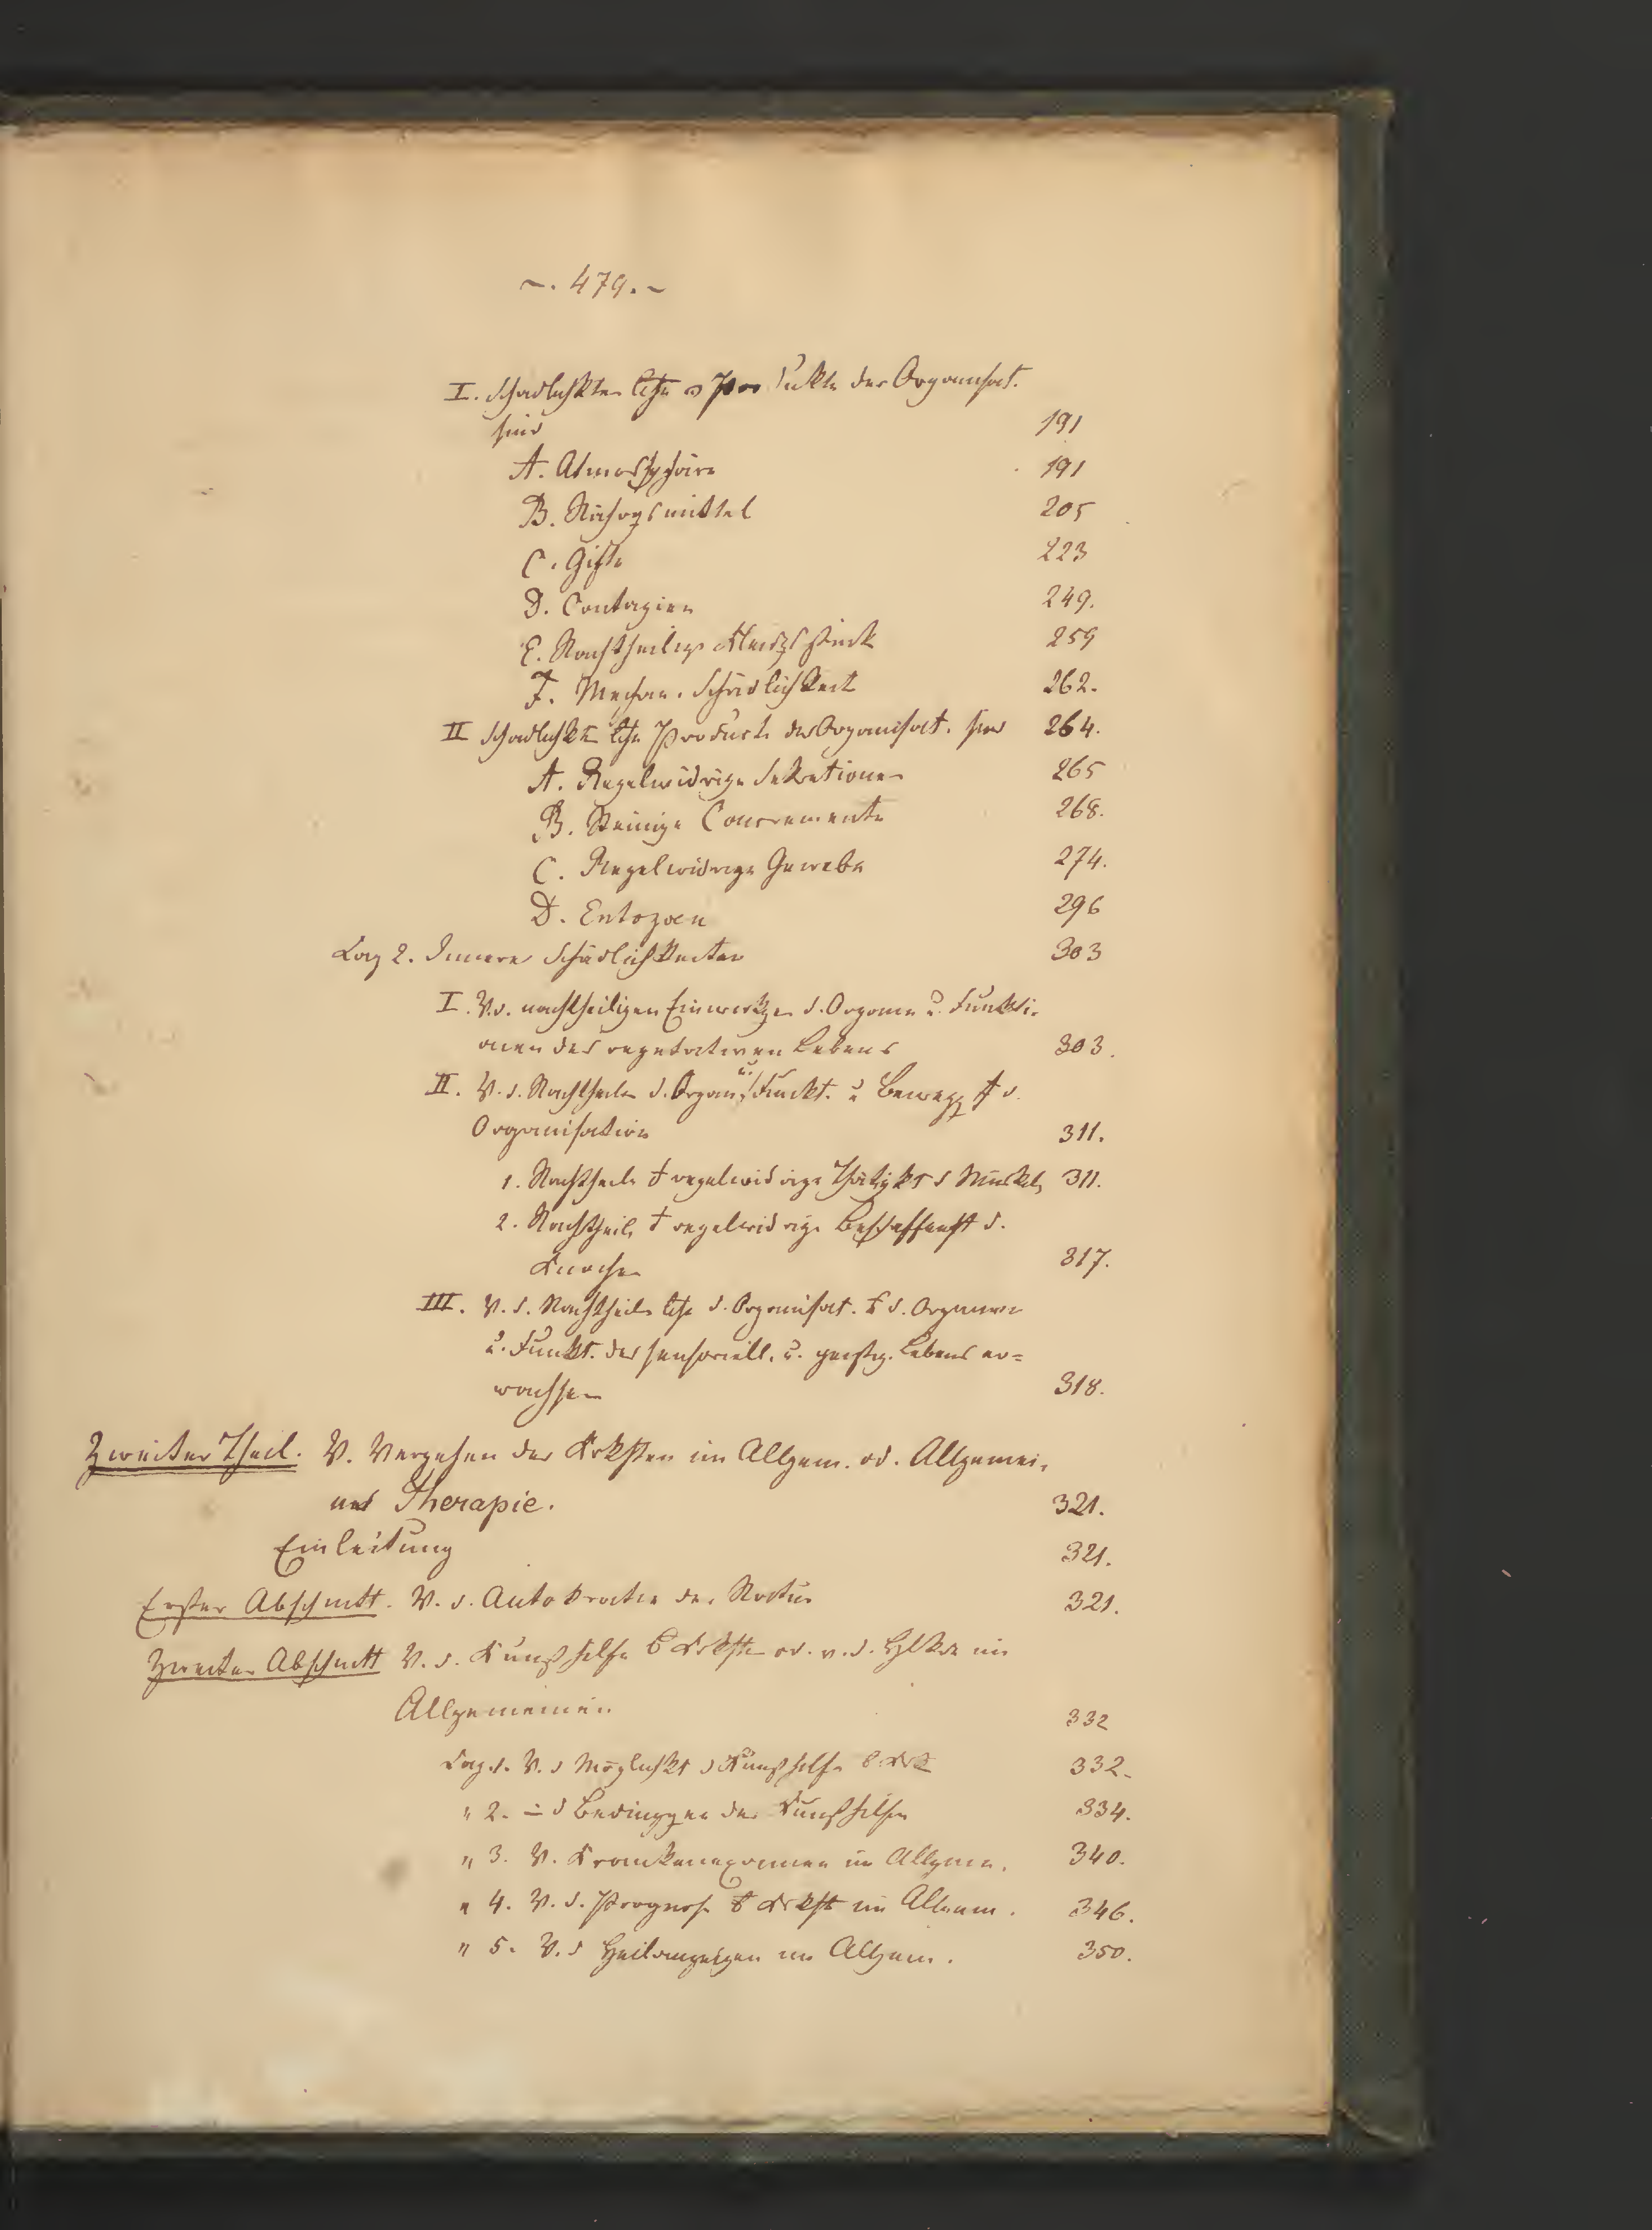 ~. 479. ~
I. Schädlichkten, lche Produkte der Organisat.
sind 191
A. Atmosphäre 191
B. Nahrgsmittel 205
C. Gifte 223
D. Contagien 249.
E. Nachtheilige Kleidgsstück 259
F. Mechan. Schädlichkeit 262.
II Schädlichkt lche Producte der Organisat. sind 264.
A. Regelwidrige Sekretionen 265
B. Steinige Concremente 268.
C. Regelwidrige Gewebe 274.
D. Entozoen 296
Cap 2. Innere Schädlichkeiten 303
I. V. d. nachtheiligen Einwirkgen d. Organe u. Funkti-
onen des vegetativen Lebens 303.
II. V. d. Nachtheilen d. Organ. u. Funkt. d Bewegg d.
Organisation 311.
1. Nachtheile regelwidrige Thätigkt d Muskeln 311.
2. Nachtheile regelwidrige Beschaffenht d.
Knochen 317.
III. V. d. Nachtheilen lche d. Organisat. d. Organen
u. Funkt. des sensoriell. u. geistig. Lebens er=
wachsen 318.
Zweiter Theil. V. Vergehen der Krkhten im Allgem. od. Allgemei-
ne Therapie. 321.
Einleitung 321.
Erster Abschnitt. V. d. Autokratie der Natur 321.
Zweiter Abschnitt V. d. Kunsthilfe Krkhten od. v. d. im
Allgemeinen 332
Cap. 1. V. d Möglichkt d Kunsthilfe 332.
" 2. - d Bedinggen der Kunsthilfe 334.
" 3. V. Krankenexamen im Allgem. 340.
" 4. V. d. Prognose Krkht im Allgem. 346.
" 5. V. d Heilanzeigen im Allgem. 350.